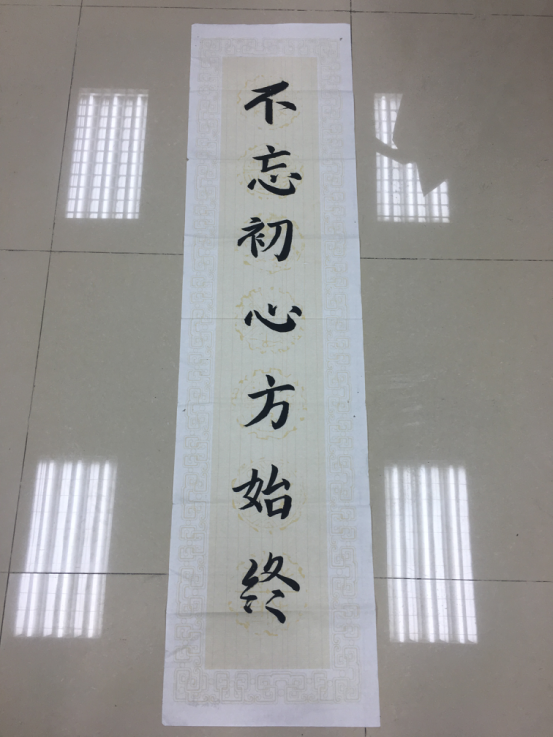 不忘初心方始终